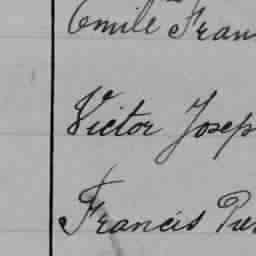 Emile Fran
Victor Josep
Francis Pu